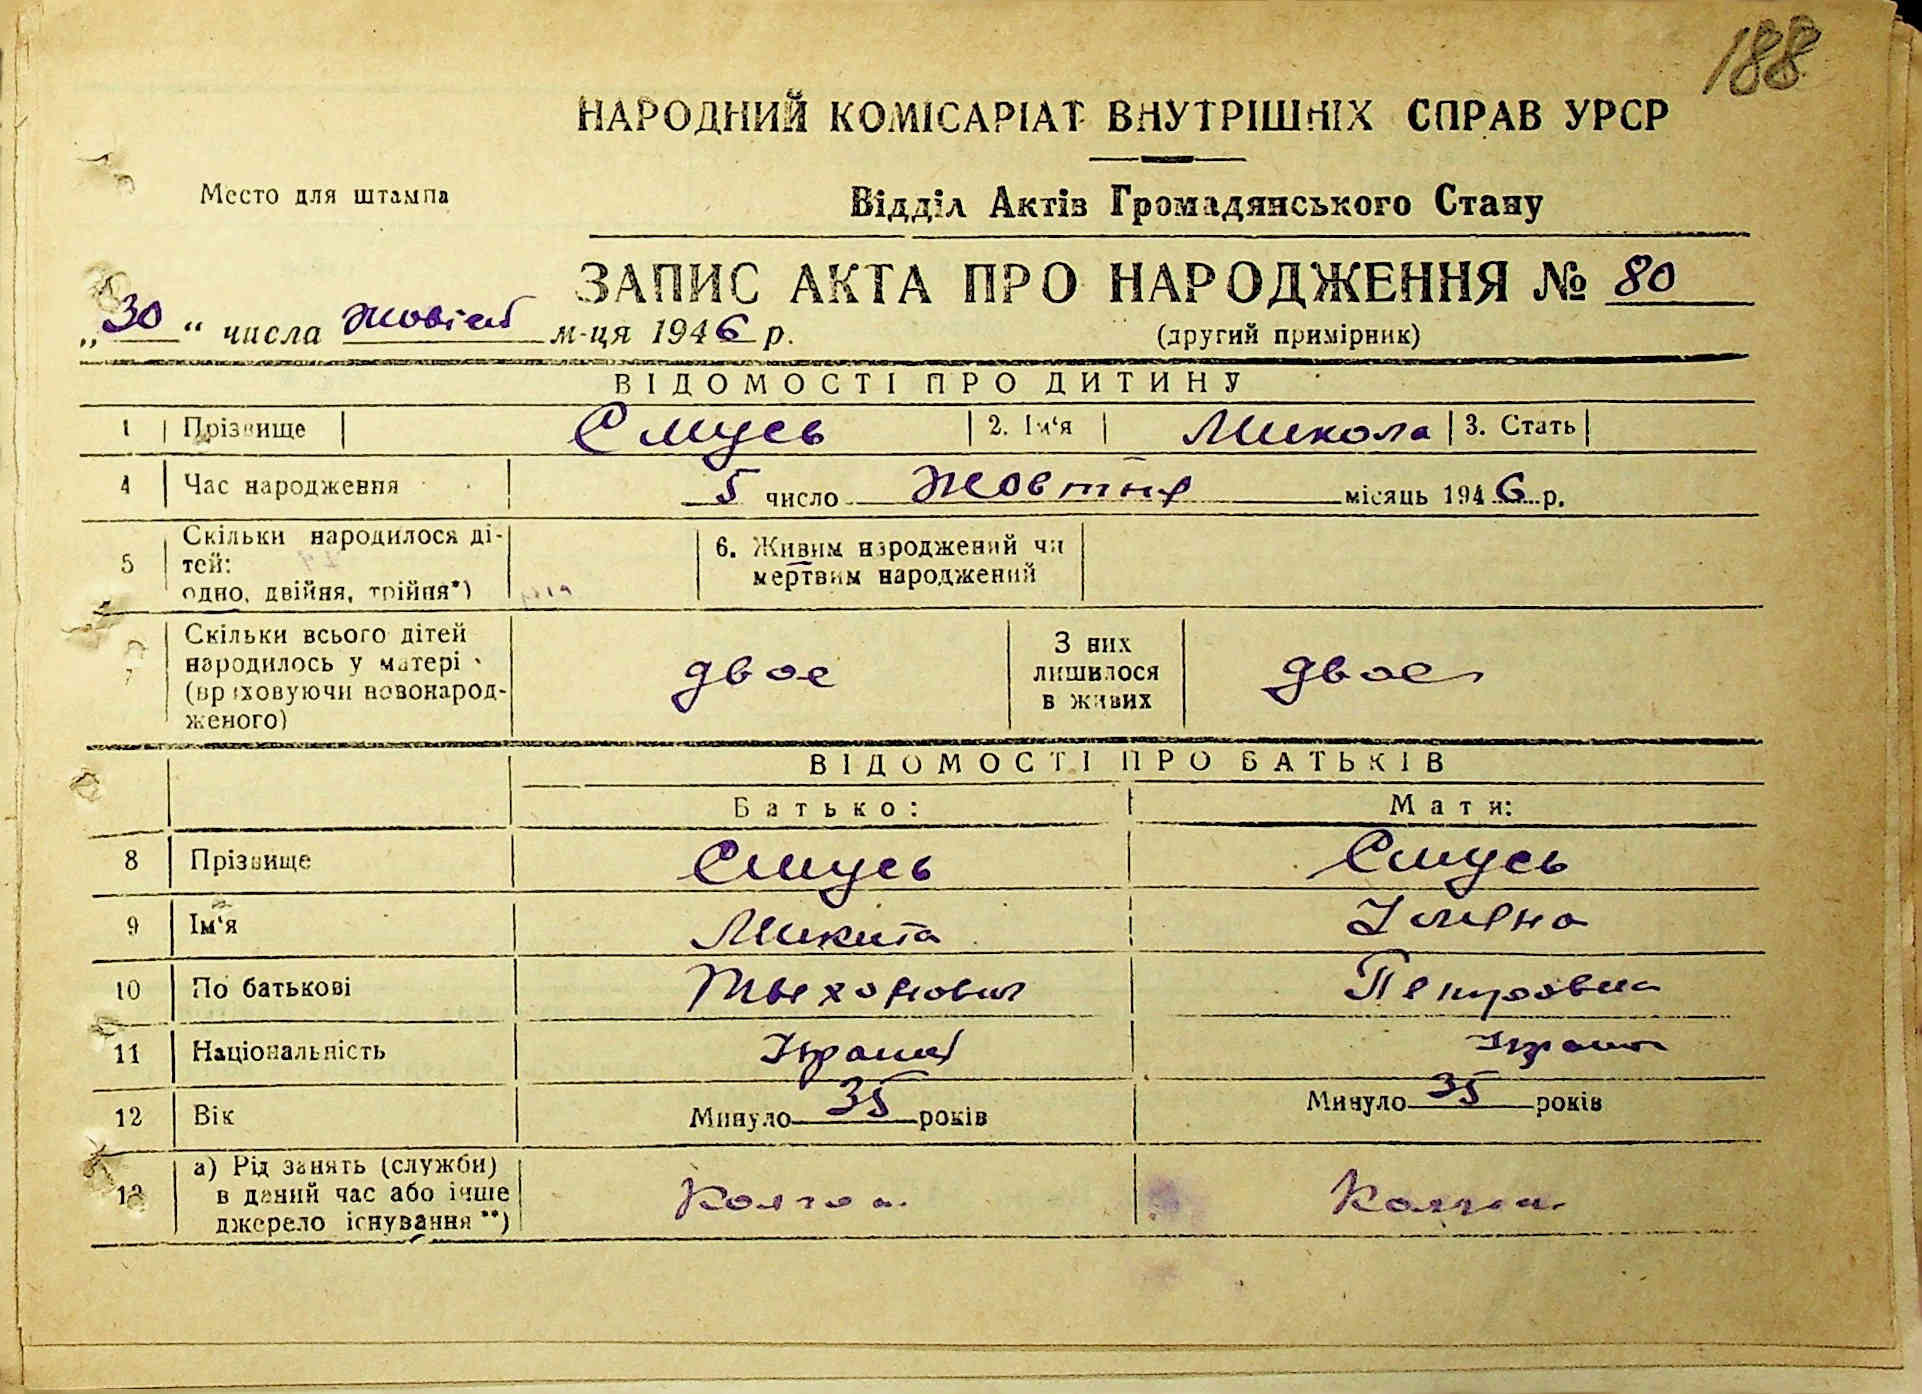 188
НАРОДНИЙ КОМІСАРІАТ ВНУТРІШНІХ СПРАВ УРСР
Место для штампа
Відділ Актів Громадянського Стану
ЗАПИС АКТА ПРО НАРОДЖЕННЯ № 80
„30“ числа м-ця 1946 р.
(другий примірник)
ВІДОМОСТІ ПРО ДИТИНУ
1 Прізвище Смусь 2. Ім'я Микола 3. Стать
4 Час народження 5 число Жовтня місяць 1946 р.
5 Скільки народилося ді-
тей:
одно, двійня, трійня*)
6. Живим народжений чи
мертвим народжений
7 Скільки всього дітей
народилось у матері
(враховуючи новонарод-
женого)
двое
З них
лишилося
в живих
двое
ВІДОМОСТІ ПРО БАТЬКІВ
Батько: Мати:
8 Прізвище Смусь Смусь
9 Ім'я Микита
10 По батькові Тихонович Петровна
11 Національність
12 Вік Минуло 35 років Минуло 35 років
13 а) Рід занять (служби)
в даний час або інше
джерело існування**)